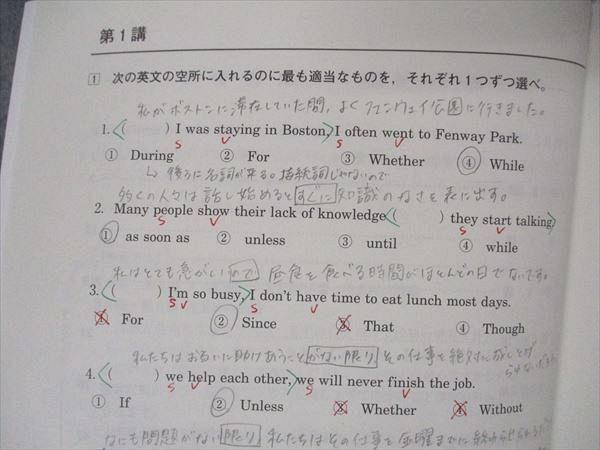 第1講
1 次の英文の空所に入れるのに最も適当なものを，それぞれ1つずつ選べ。
私がボストンに滞在していた間，よくフェンウェイ公園に行きました。
1. ( ) I was staying in Boston, I often went to Fenway Park.
S V S V
① During ② For ③ Whether ④ While
↳ 後ろに名詞が来る。接続詞じゃないので
多くの人々は話し始めるとすぐに知識のなさを表に出す。
2. Many people show their lack of knowledge ( ) they start talking.
S V S V
① as soon as ② unless ③ until ④ while
私はとても急がしいので 昼食を食べる時間がほとんどの日でないです。
3. ( ) I'm so busy, I don't have time to eat lunch most days.
S V S V
① For ② Since ③ That ④ Though
私たちはお互いに助けあうことがない限り その仕事を絶対に
4. ( ) we help each other, we will never finish the job.
S V S V
① If ② Unless ③ Whether ④ Without
なにも問題がない限り 私たちはその仕事を金曜までに